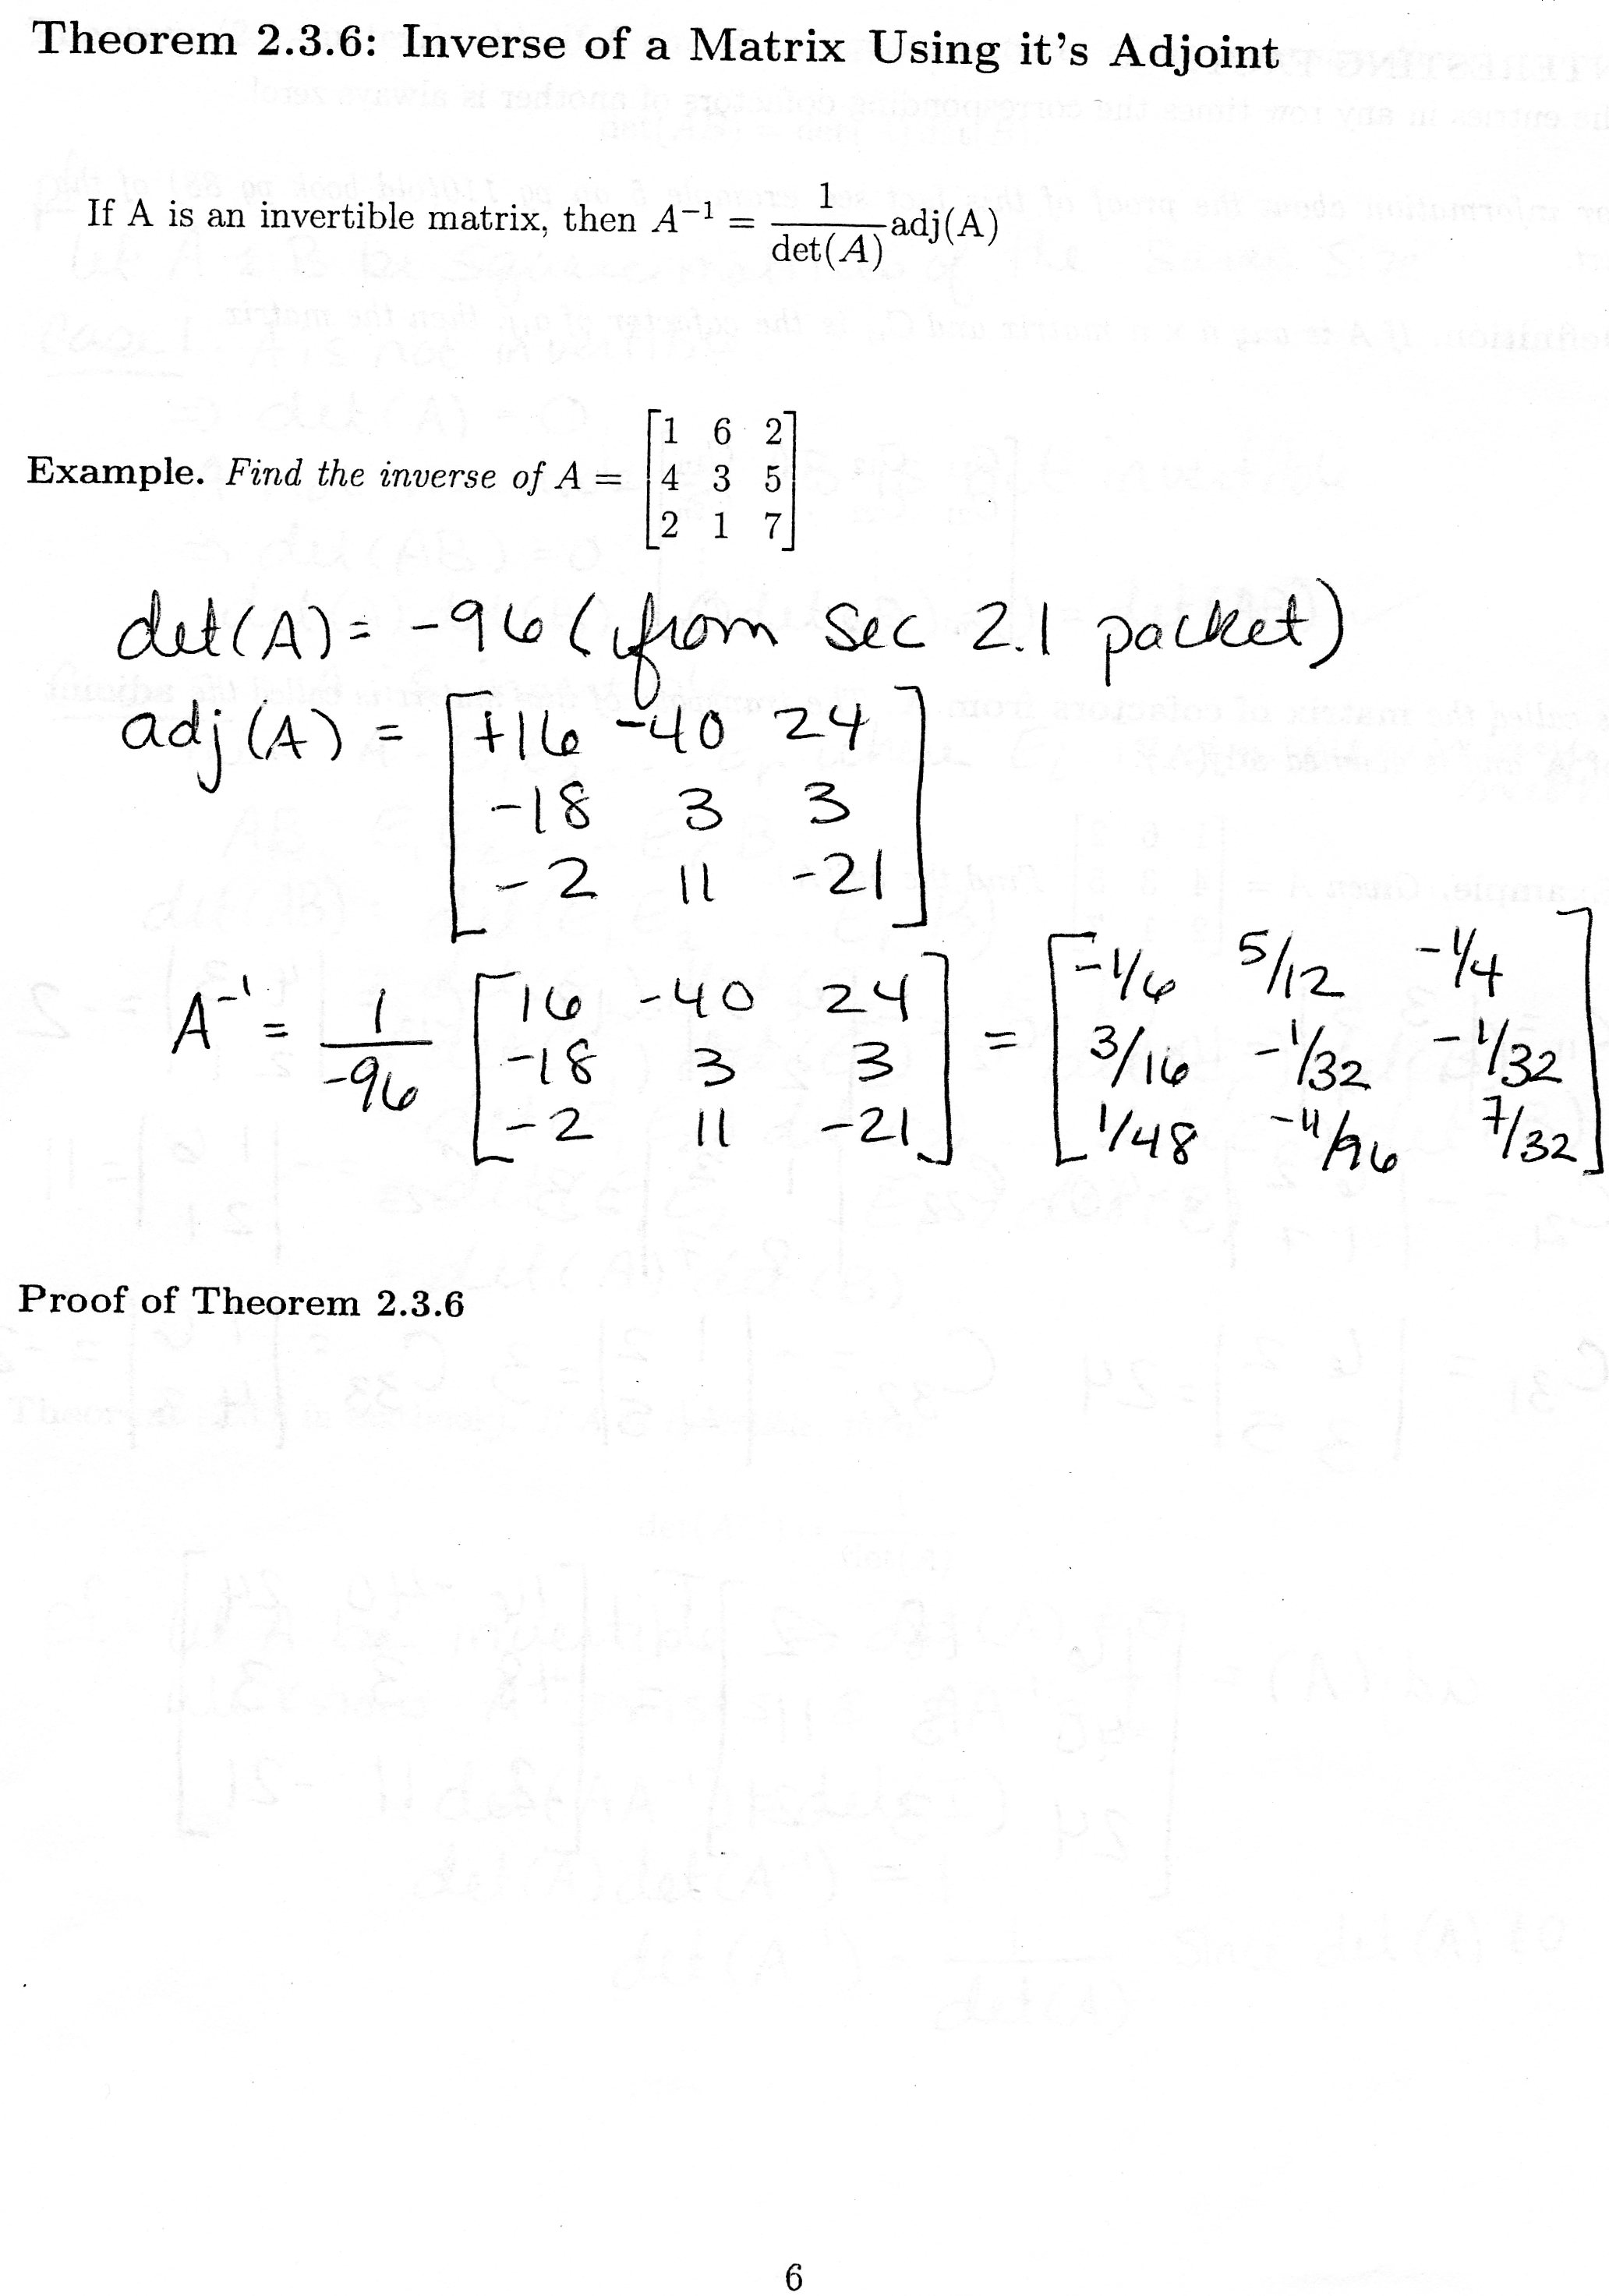 Theorem 2.3.6: Inverse of a Matrix Using it's Adjoint
If A is an invertible matrix, then A⁻¹ = 1/det(A) adj(A)
Example. Find the inverse of A = [1 6 2
4 3 5
2 1 7]
det(A) = -96 (from Sec 2.1 packet)
adj(A) = [+16 -40 24
-18 3 3
-2 11 -21]
A⁻¹ = 1/-96 [16 -40 24
-18 3 3
-2 11 -21] = [-1/6 5/12 -1/4
3/16 -1/32 -1/32
1/48 -11/96 7/32]
Proof of Theorem 2.3.6
6